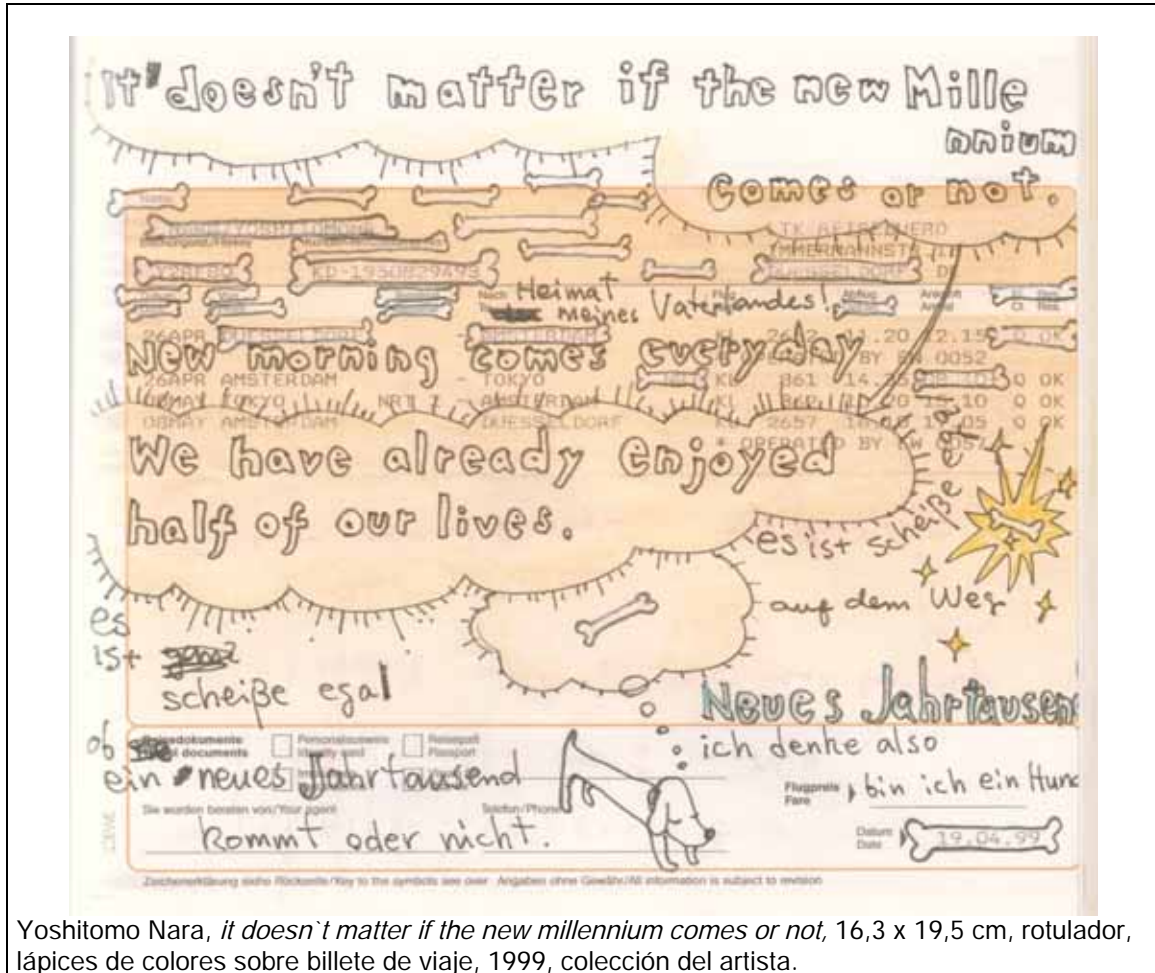 It' doesn't matter if the new Mille
nnium
Comes or not.
Name
TK REISEBUERO
IMMERMANNSTR
DUESSELDORF
KD-1950M29A93
Nach
Heimat
meines Vaterlandes!
Abflug
26APR DUESSELDORF - AMSTERDAM KL 11.20 12.15 OK
New morning comes every day
BY 0052
26APR AMSTERDAM - TOKYO KL 861 14. Q OK
08MAY TOKYO NRT 2 - AMSTERDAM KL 862 15.10 Q OK
08MAY AMSTERDAM - DUESSELDORF 2657 Q OK
* OPERATED BY
We have already enjoyed
half of our lives.
es ist scheiße egal
auf dem Weg
es
ist
scheiße egal
Neues Jahrtausend
ob
ein neues Jahrtausend
kommt oder nicht.
ich denke also
bin ich ein Hund
Reisedokumente
Travel documents
Personalausweis
Identity card
Reisepaß
Passport
Sie wurden beraten von/Your agent
Telefon/Phone
Flugpreis
Fare
Datum
Date
19.04.99
Zeichenerklärung siehe Rückseite/Key to the symbols see over Angaben ohne Gewähr/All information is subject to revision
Yoshitomo Nara, it doesn`t matter if the new millennium comes or not, 16,3 x 19,5 cm, rotulador,
lápices de colores sobre billete de viaje, 1999, colección del artista.